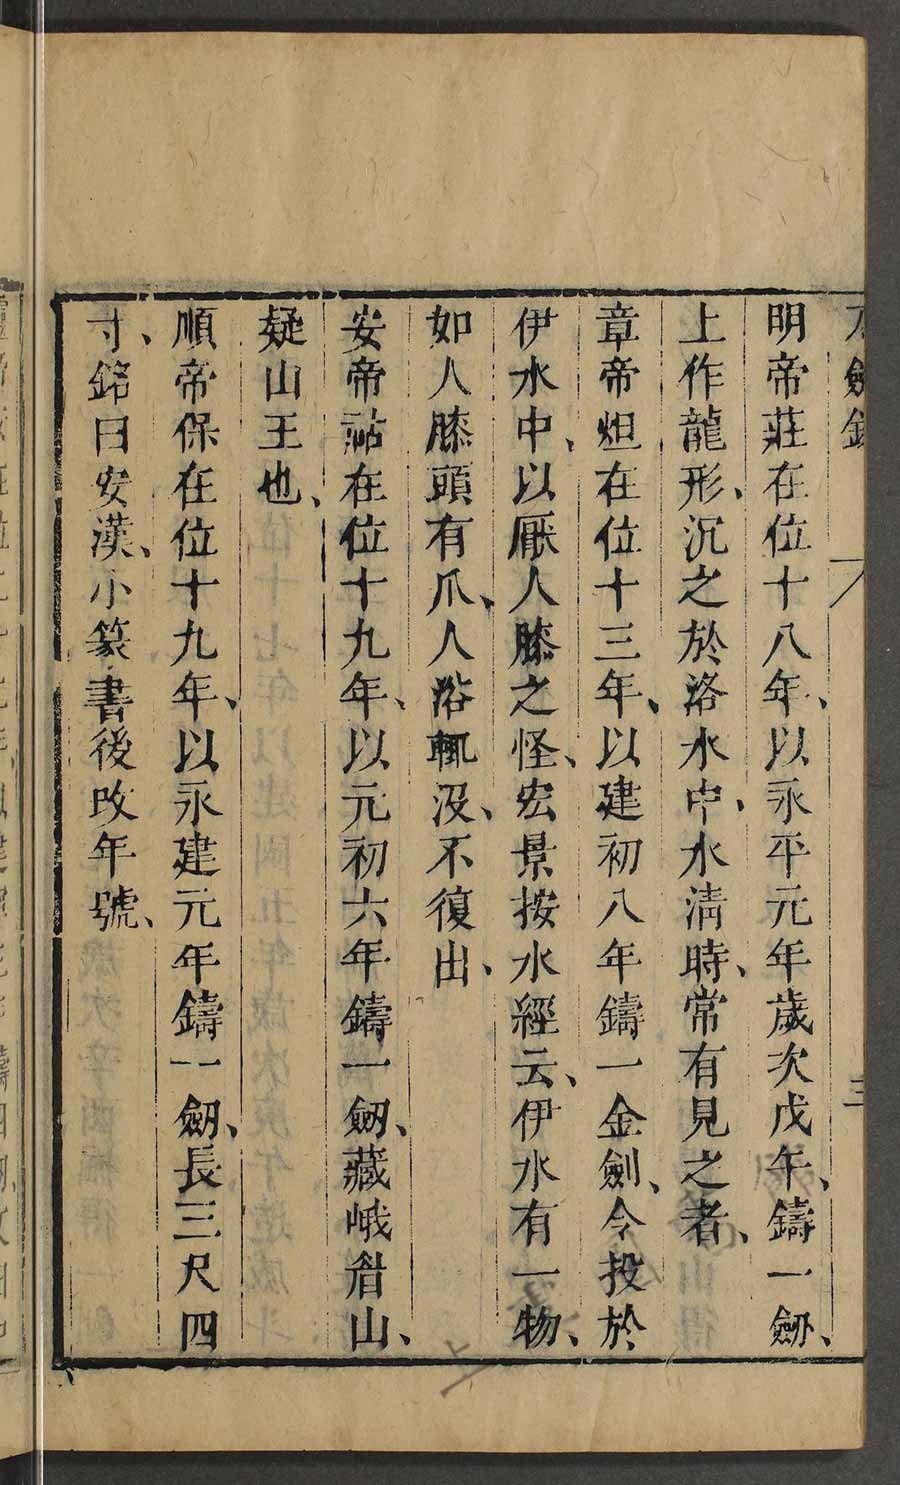 刀劍錄 三
明帝莊在位十八年、以永平元年歲次戊午、鑄一劒、
上作龍形、沉之於洛水中、水清時、常有見之者、
章帝炟在位十三年、以建初八年鑄一金劍、令投於
伊水中、以厭人膝之怪、宏景按水經云、伊水有一物、
如人膝頭有爪、人浴輒没、不復出、
安帝祜在位十九年、以元初六年鑄一劒、藏峨眉山、
疑山王也、
順帝保在位十九年、以永建元年鑄一劒、長三尺四
寸、銘曰安漢、小篆書後改年號、